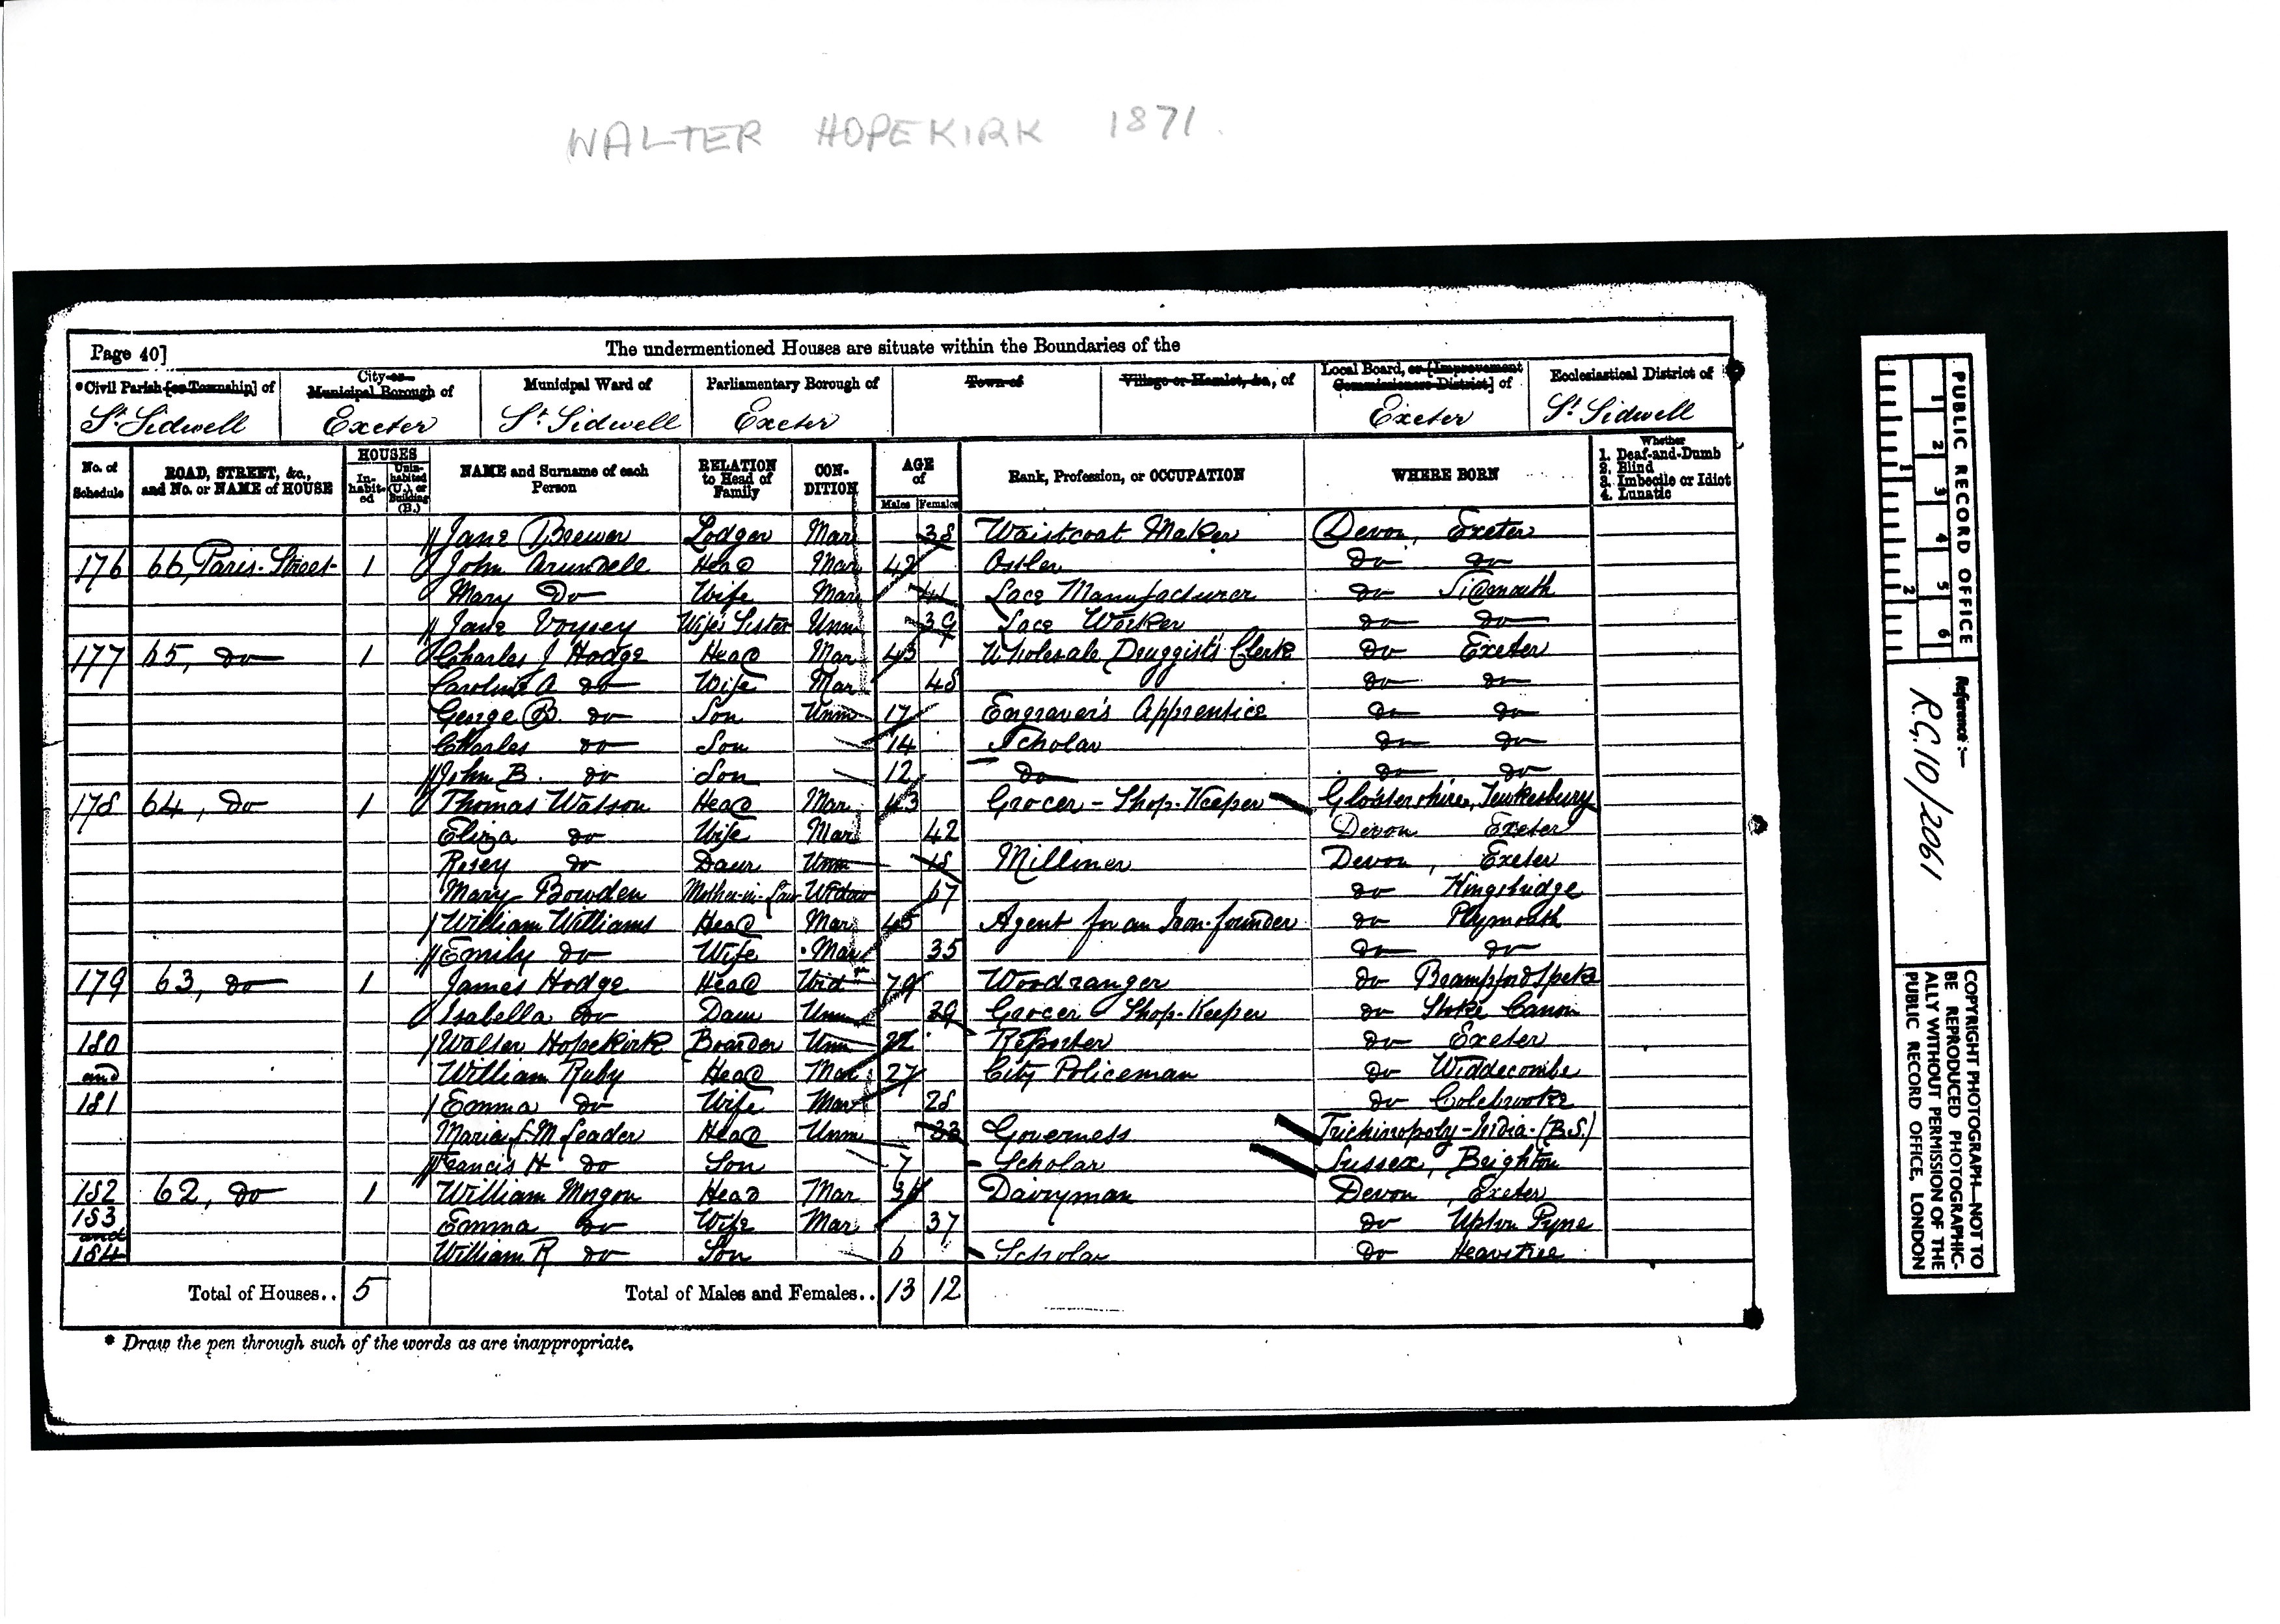 WALTER HOPEKIRK 1871.
Page 40] The undermentioned Houses are situate within the Boundaries of the
*Civil Parish [or Township] of City or Municipal Borough of Municipal Ward of Parliamentary Borough of Town of Village or Hamlet, &c., of Local Board, or [Improvement Commissioners District] of Ecclesiastical District of
St. Sidwell Exeter St. Sidwell Exeter Exeter St. Sidwell
No. of Schedule ROAD, STREET, &c., and No. or NAME of HOUSE HOUSES In-habit-ed Unin-habited (U.), or Building (B.) NAME and Surname of each Person RELATION to Head of Family CON-DITION AGE of Males Females Rank, Profession, or OCCUPATION WHERE BORN Whether 1. Deaf-and-Dumb 2. Blind 3. Imbecile or Idiot 4. Lunatic
Jane Brewer Lodger Mar 38 Waistcoat Maker Devon, Exeter
176 66, Paris Street 1 John Arundell Head Mar 42 Ostler Do Do
Mary Do Wife Mar 44 Lace Manufacturer Do Sidmouth
Jane Voysey Wife's Sister Unm 39 Lace Worker Do Do
177 65, Do 1 Charles J Hodge Head Mar 43 Wholesale Druggist's Clerk Do Exeter
Caroline A Do Wife Mar 48 Do Do
George B. Do Son Unm 17 Engraver's Apprentice Do Do
Charles Do Son 14 Scholar Do Do
John B. Do Son 12 Do Do Do
178 64, Do 1 Thomas Watson Head Mar 43 Grocer - Shop-Keeper Glostershire, Tewkesbury
Eliza Do Wife Mar 42 Devon Exeter
Rosey Do Daur Unm 18 Milliner Devon, Exeter
Mary Bowden Mother-in-Law Widow 67 Do Kingsbridge
William Williams Head Mar 45 Agent for an Iron-founder Do Plymouth
Emily Do Wife Mar 35 Do Do
179 63, Do 1 James Hodge Head Widr 79 Woodranger Do Brampford Speke
Isabella Do Daur Unm 39 Grocer Shop-Keeper Do Stoke Canon
180 Walter Hopekirk Boarder Unm 22 Reporter Do Exeter
and William Ruby Head Mar 27 City Policeman Do Widdecombe
181 Emma Do Wife Mar 28 Do Colebrooke
Maria L M Leader Head Unm 33 Governess Trichinopoly - India - (B.S.)
Francis H Do Son 7 Scholar Sussex, Brighton
182 62, Do 1 William Morgon Head Mar 36 Dairyman Devon, Exeter
183 Emma Do Wife Mar 37 Do Upton Pyne
and
184 William R Do Son 6 Scholar Do Heavitree
Total of Houses.. 5 Total of Males and Females.. 13 12
* Draw the pen through such of the words as are inappropriate.
PUBLIC RECORD OFFICE
1 2 3 4 5 6
1 2
Reference :-
R.G. 10/2061
COPYRIGHT PHOTOGRAPH—NOT TO
BE REPRODUCED PHOTOGRAPHIC-
ALLY WITHOUT PERMISSION OF THE
PUBLIC RECORD OFFICE, LONDON